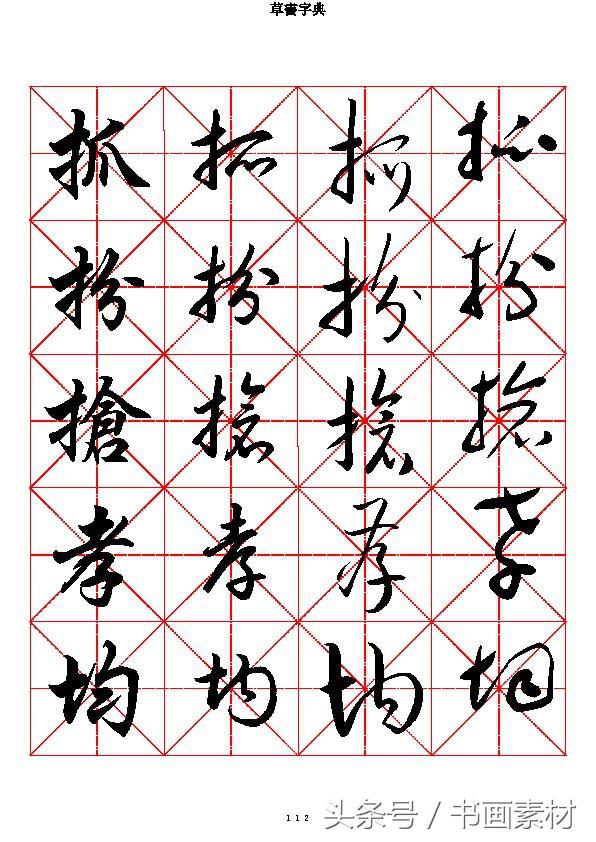 草書字典
抓 抓 抓 抓
扮 扮 扮 扮
搶 搶 搶 搶
孝 孝 孝 孝
均 均 均 均
112
头条号 / 书画素材